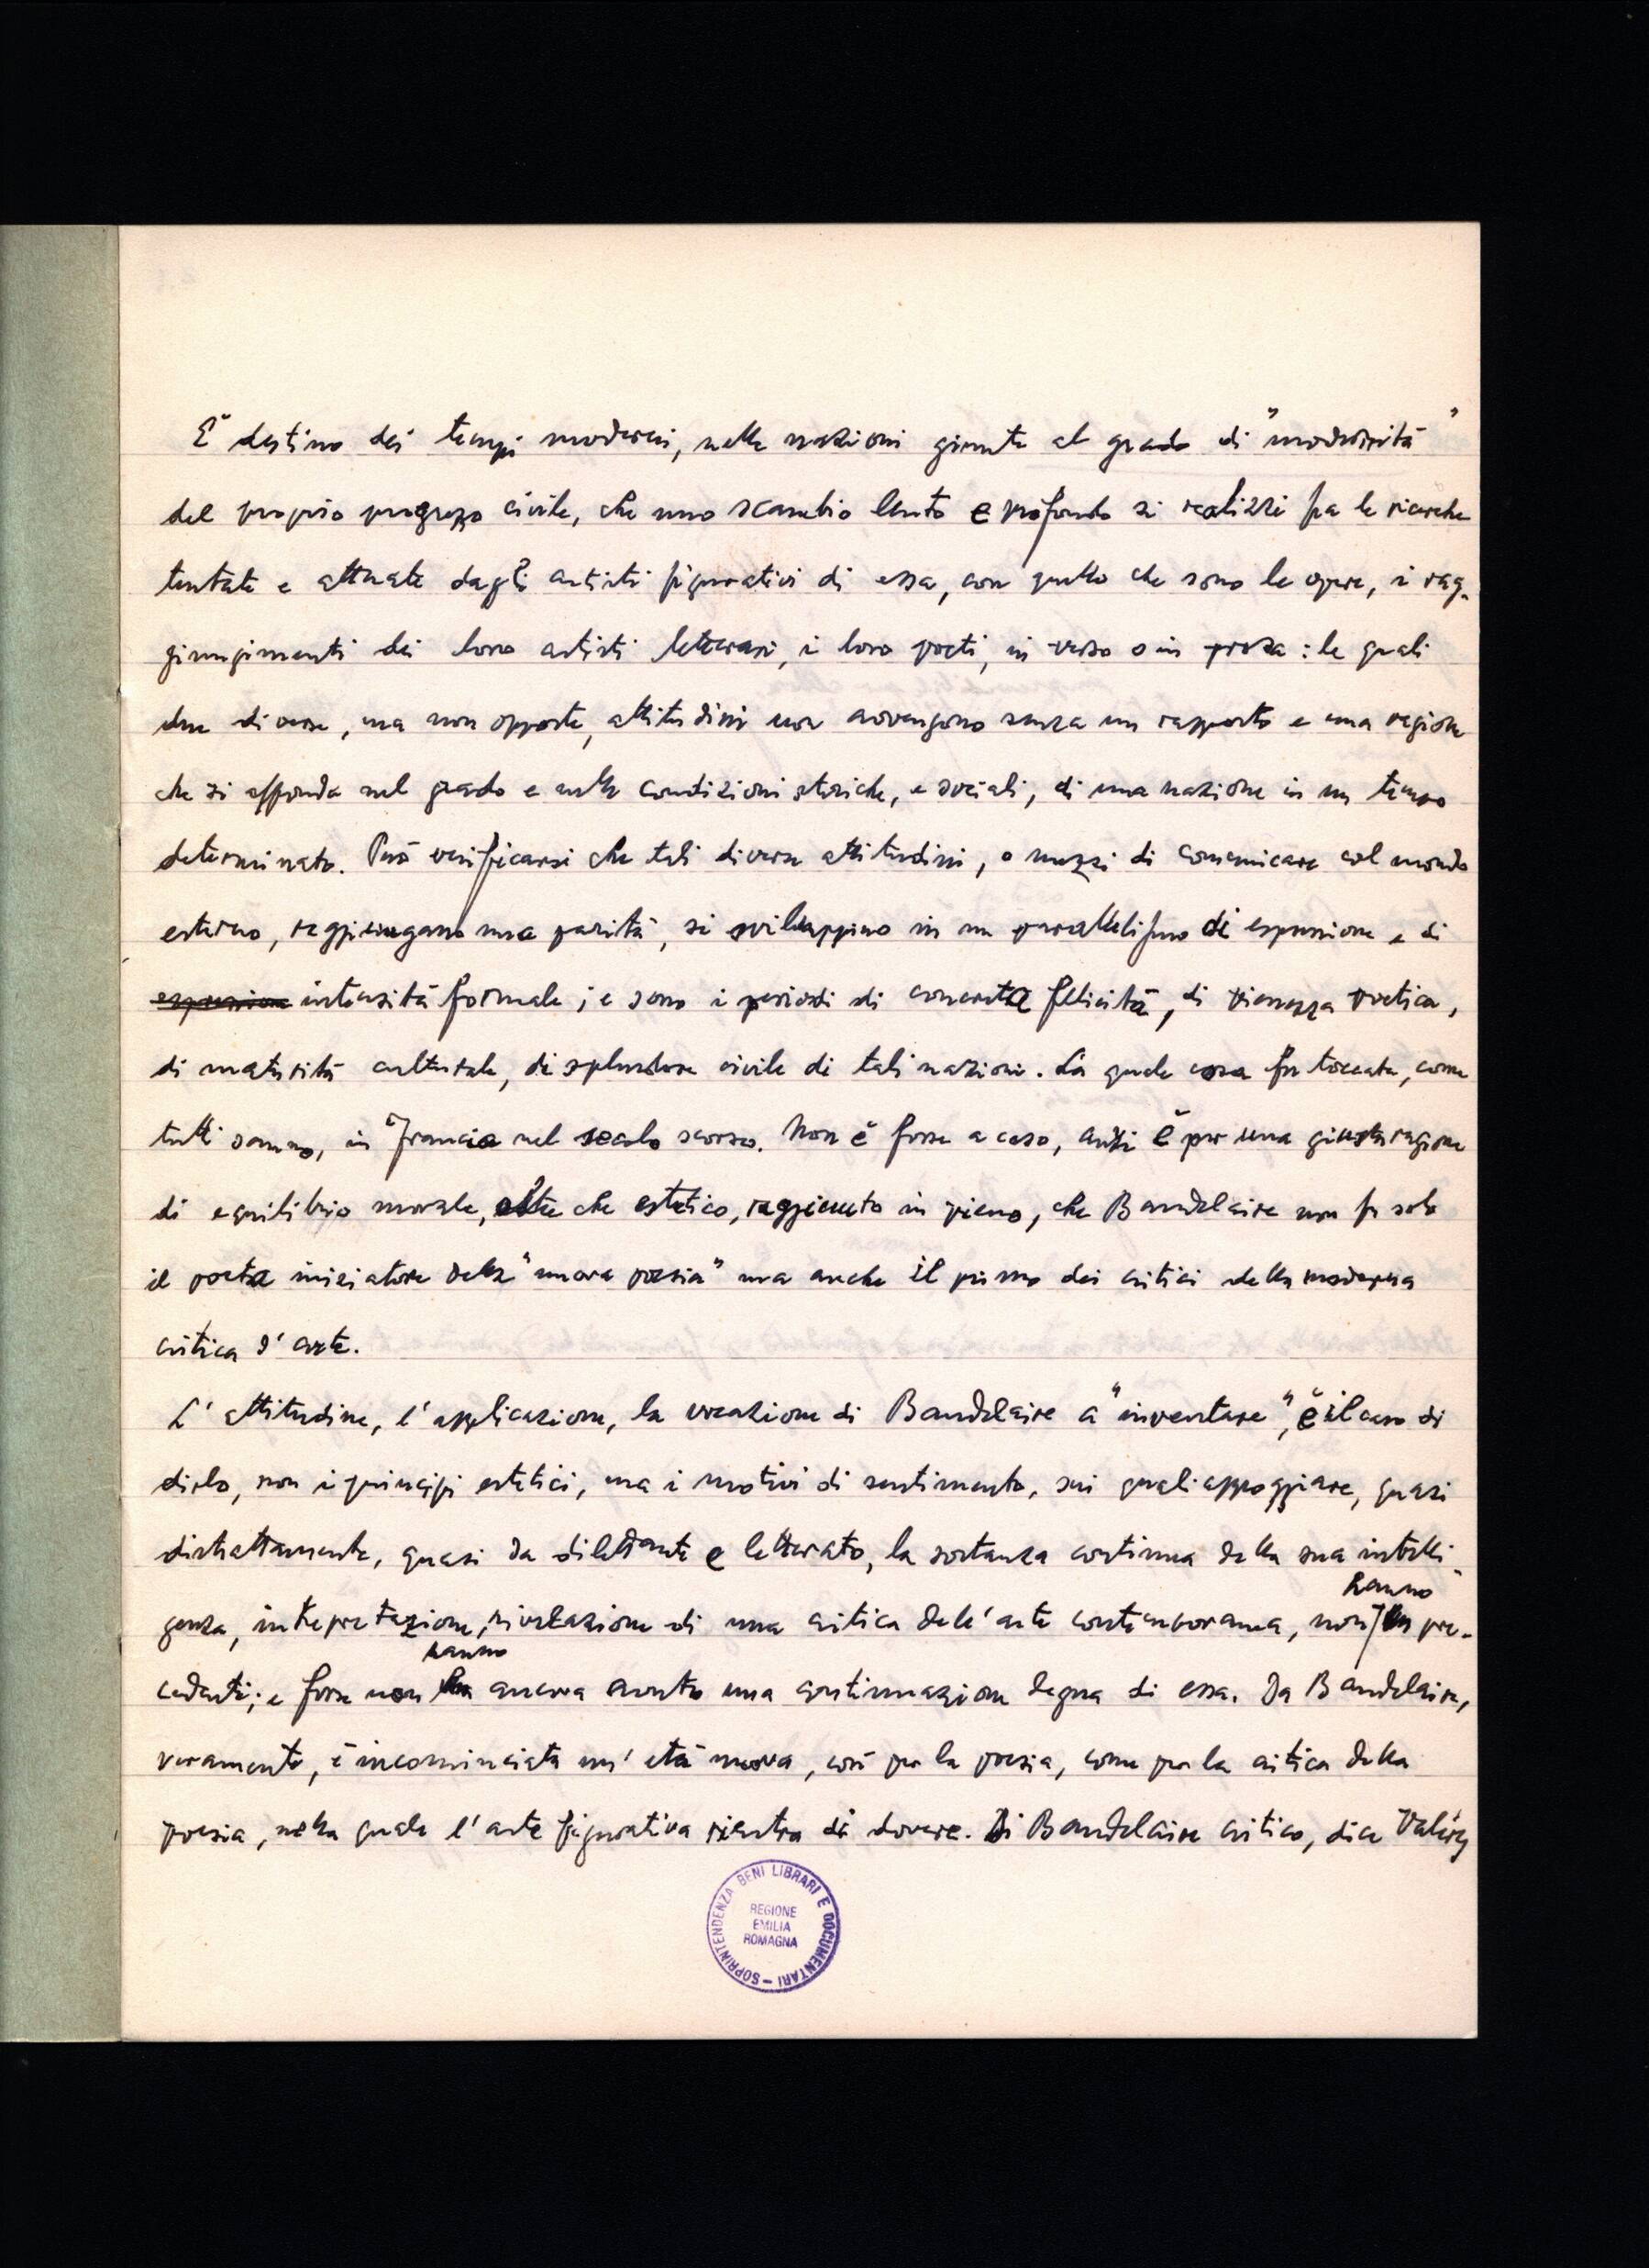 E' destino dei tempi moderni, nelle nazioni giunte al grado di "modernità"
del proprio progresso civile, che uno scambio lento e profondo si realizzi fra le ricerche
tentate e attuate dagli artisti figurativi di essa, con quello che sono le opere, i rag-
giungimenti dei loro artisti letterari, i loro poeti, in verso o in prosa: le quali
due diverse, ma non opposte, attitudini non avvengono senza un rapporto e una ragione
che si affonda nel grado e nelle condizioni storiche, e sociali, di una nazione in un tempo
determinato. Può verificarsi che tali diverse attitudini, o mezzi di comunicare col mondo
esterno, raggiungano una parità, si sviluppino in un parallelismo di espressione e di
espressione intensità formale; e sono i periodi di concreta felicità, di pienezza poetica,
di maturità culturale, di splendore civile di tali nazioni. La quale cosa fu toccata, come
tutti sanno, in Francia nel secolo scorso. Non è forse a caso, anzi è per una giusta ragione
di equilibrio morale, oltre che estetico, raggiunto in pieno, che Baudelaire non fu solo
il poeta iniziatore della "nuova poesia" ma anche il primo dei critici della moderna
critica d'arte.
L'attitudine, l'applicazione, la vocazione di Baudelaire a "inventare", è il caso di
dirlo, non i principi estetici, ma i motivi di sentimento, sui quali appoggiare, quasi
distrattamente, quasi da dilettante e letterato, la sostanza continua della sua intelli-
hanno
genza, interpretazione, rivelazione di una critica dell'arte contemporanea, non ha pre-
hanno
cedenti; e forse non ha ancora avuto una continuazione degna di essa. Da Baudelaire,
veramente, è incominciata un'età nuova, così per la poesia, come per la critica della
poesia, nella quale l'arte figurativa rientra di dovere. Di Baudelaire critico, dice Valéry
SOPRINTENDENZA BENI LIBRARI E DOCUMENTARI -
REGIONE
EMILIA
ROMAGNA